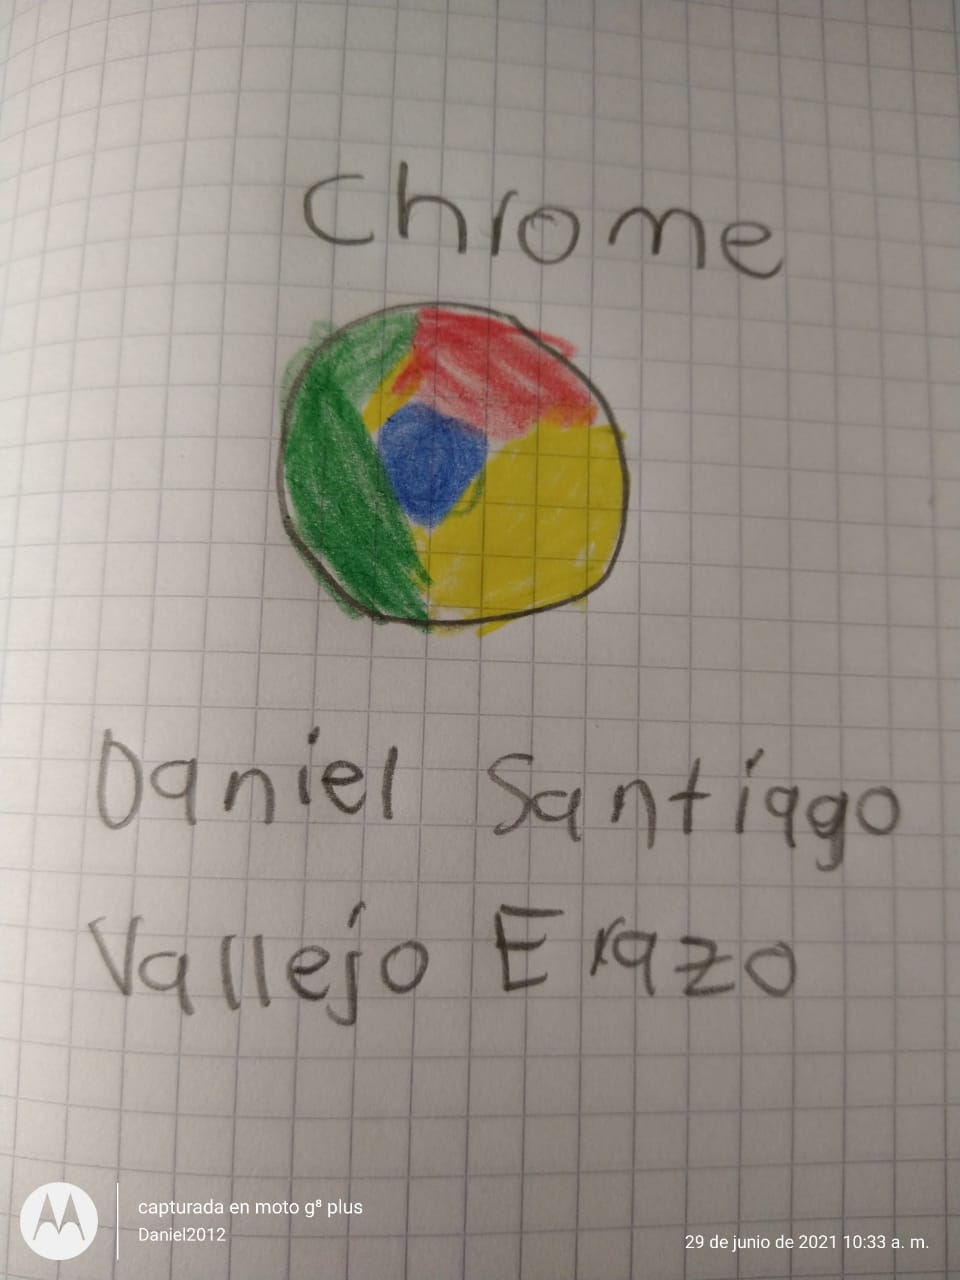 Chrome
Daniel Santiago
Vallejo Erazo
capturada en moto g⁸ plus
Daniel2012
29 de junio de 2021 10:33 a. m.